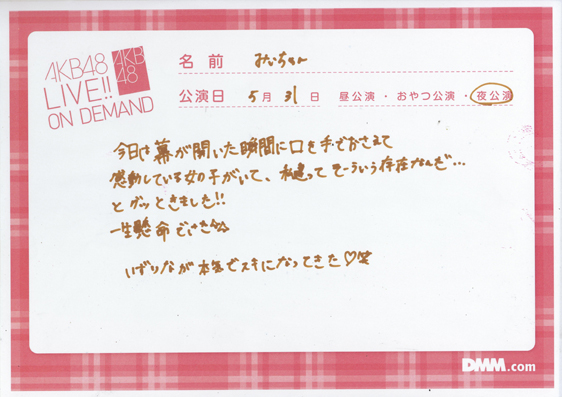 AKB48
LIVE!!
ON DEMAND
AKB
48
名前 みぃちゃん
公演日 5月31日 昼公演・おやつ公演・夜公演
今日は幕が開いた瞬間に口を手でおさえて
感動している女の子がいて、私達ってそーういう存在なんだ…
とグッときました!!
一生懸命で
いずりなが本気でスキになってきた♡笑
DMM.com